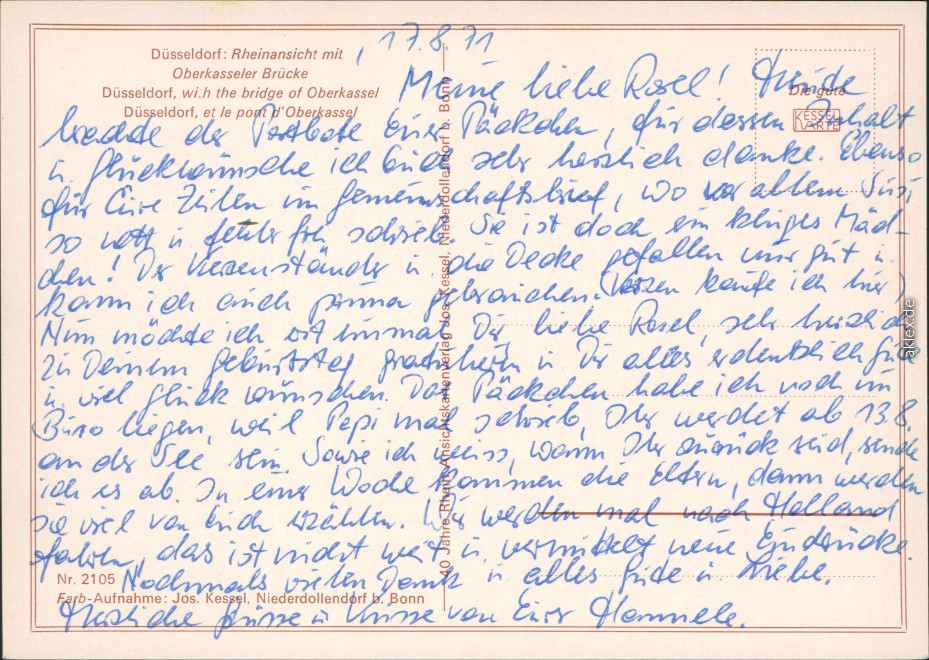 17.8.71
Düsseldorf: Rheinansicht mit
Oberkasseler Brücke
Düsseldorf, wi.h the bridge of Oberkassel
Düsseldorf, et le pont d'Oberkassel
Die gute
KESSEL
KARTE
Meine liebe Rosel! Heute
brachte der Postbote Euer Päckchen, für dessen Inhalt
u. Glückwünsche ich Euch sehr herzlich danke. Ebenso
für Eure Zeilen im Gemeinschaftsbrief, wo vor allem Susi
so nett u. fehlerfrei schrieb. Sie ist doch ein kluges Mäd-
chen! Der Kerzenständer u. die Decke gefallen mir gut u.
kann ich auch prima gebrauchen. (Kerzen kaufe ich hier)
Nun möchte ich erst einmal Dir, liebe Rosel, sehr herzlich
zu Deinem Geburtstag gratulieren u. Dir alles erdenklich Gute
u. viel Glück wünschen. Das Päckchen habe ich noch im
Büro liegen, weil Pepi mal schrieb, Ihr werdet ab 13.8.
an der See sein. Sowie ich weiss, wann Ihr zurück seid, sende
ich es ab. In einer Woche kommen die Eltern, dann werden
sie viel von Euch erzählen. Wir werden mal nach Holland
fahren, das ist nicht weit u. vermittelt neue Eindrücke.
Nochmals vielen Dank u. alles Gute u. Liebe.
Herzliche Grüsse u. Küsse von Eurer Hannele.
Nr. 2105
Farb-Aufnahme: Jos. Kessel, Niederdollendorf b. Bonn
40 Jahre Rhein. Ansichtskartenverlag Jos. Kessel, Niederdollendorf b. Bonn
aklex.de